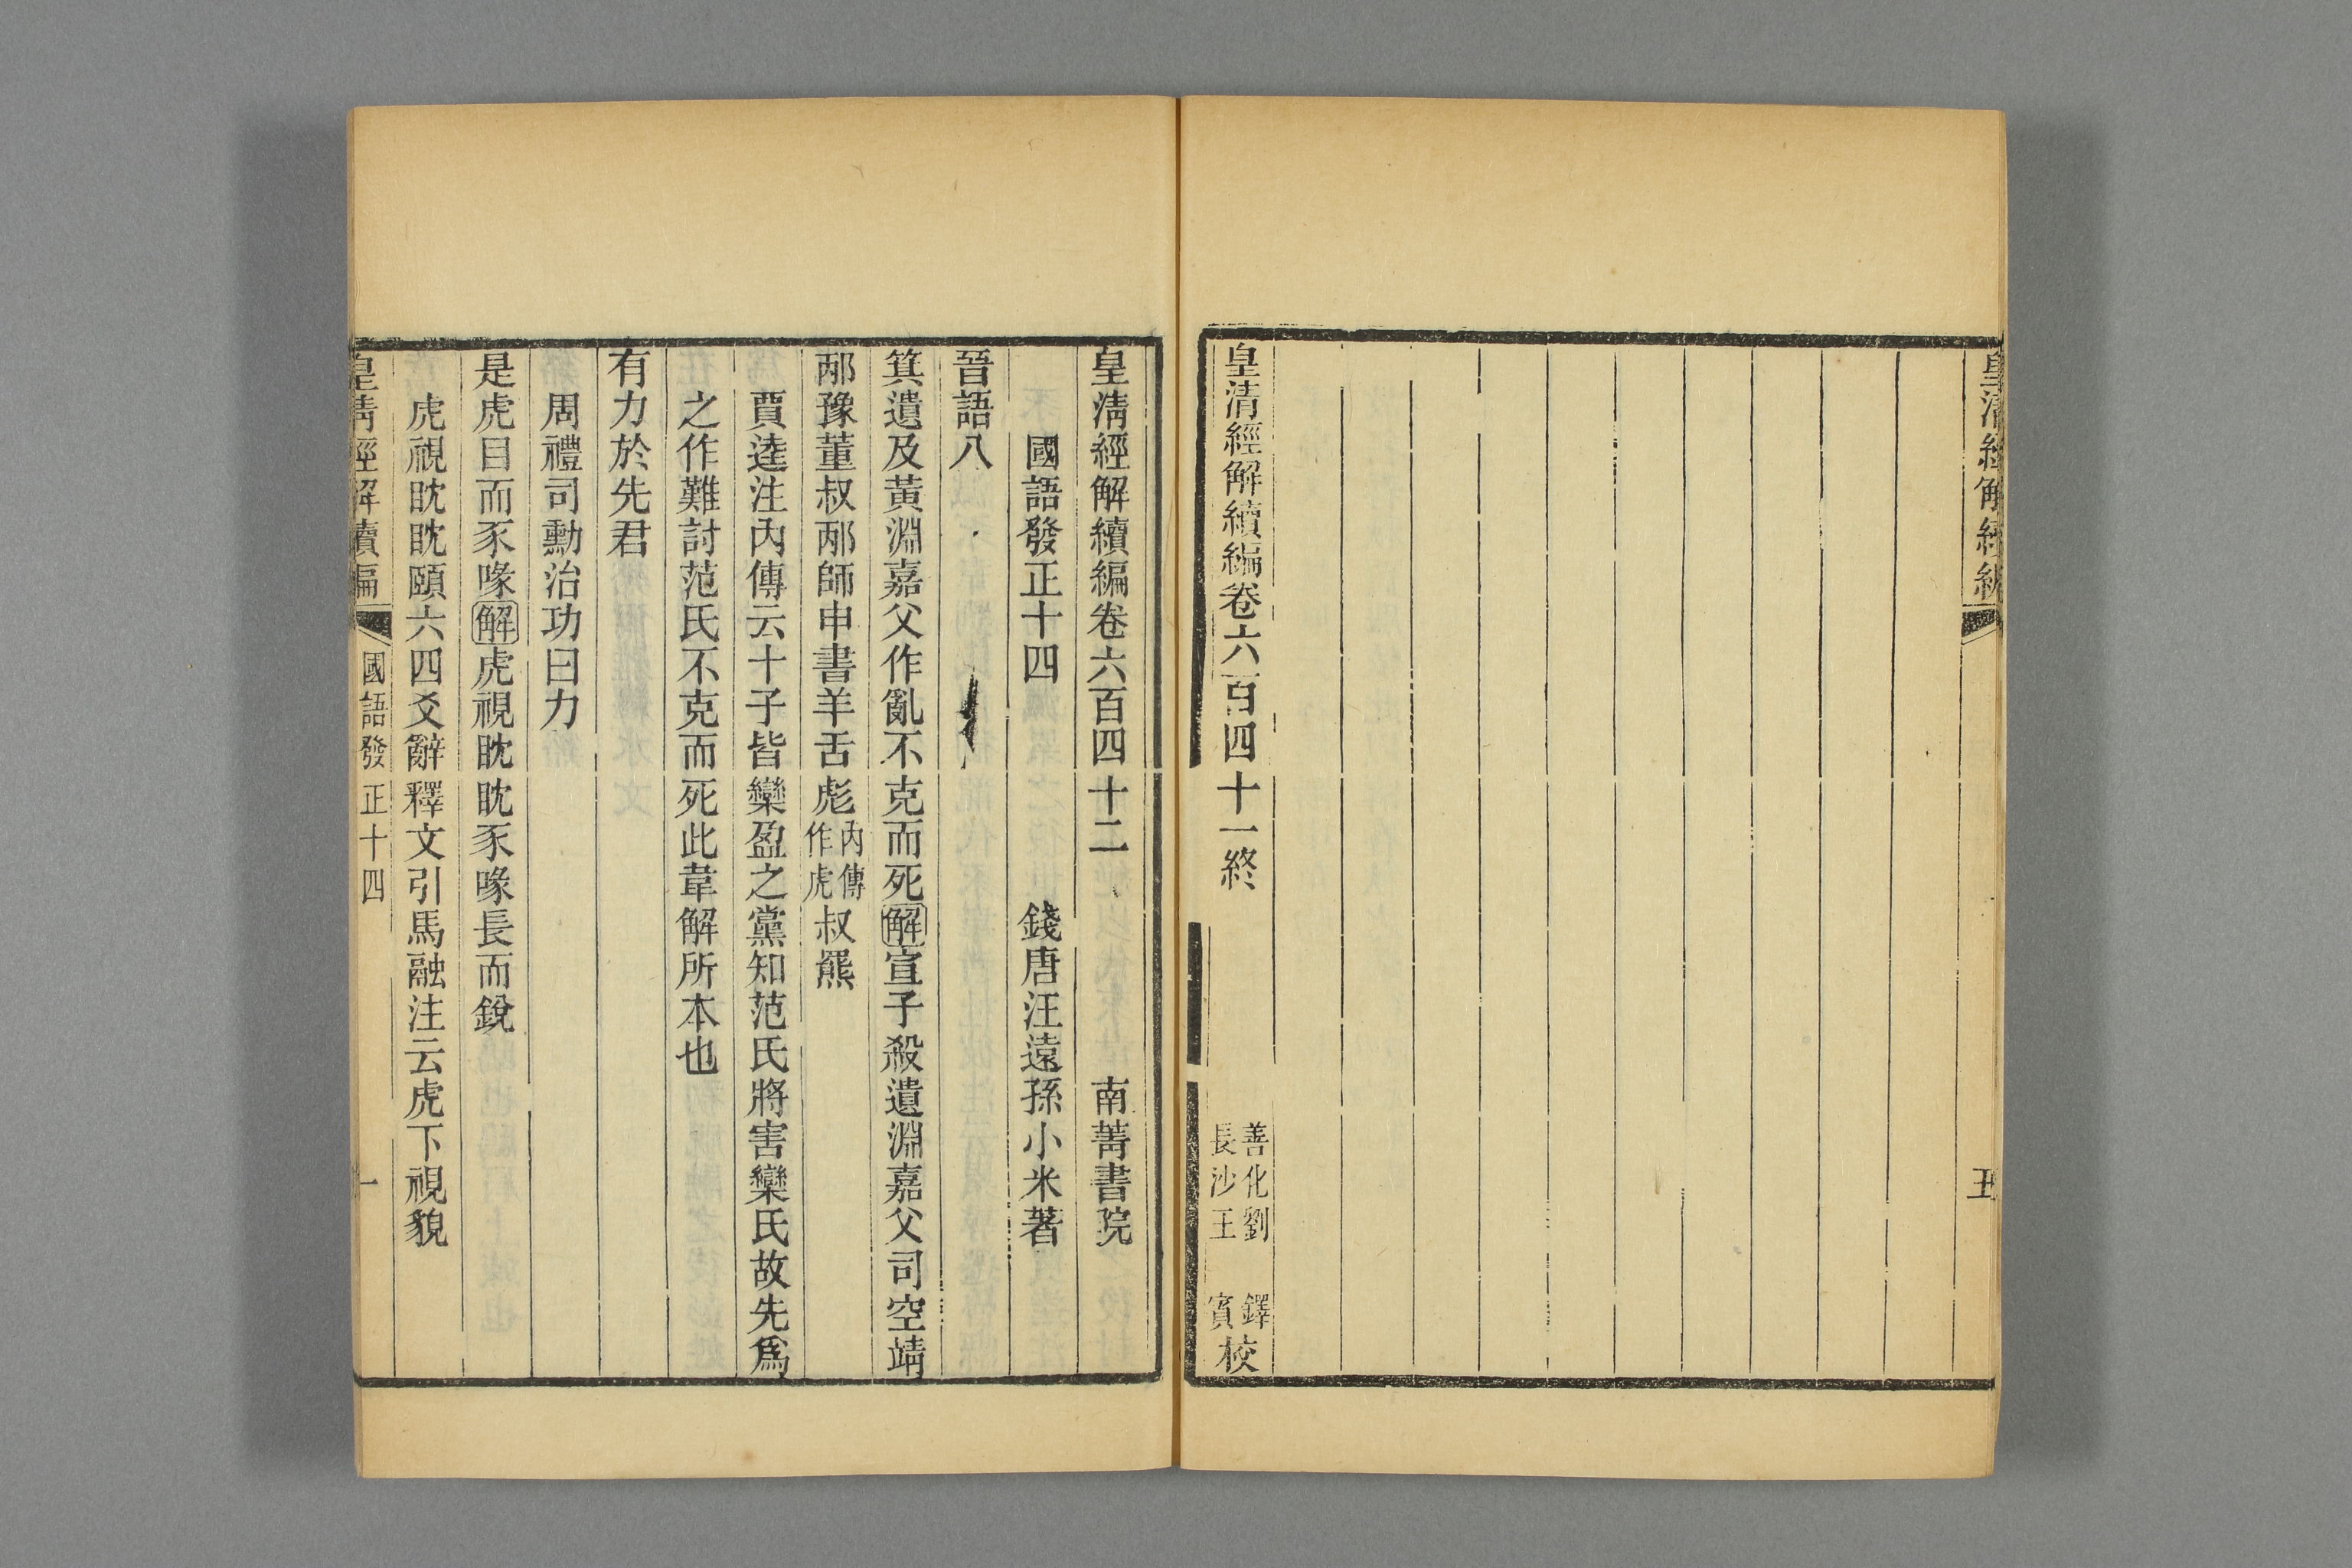 皇清經解續編
五
皇清經解續編卷六百四十一終
善化劉 鐸
長沙王 賓
校
皇淸經解續編卷六百四十二 南菁書院
國語發正十四 錢唐汪遠孫小米著
晉語八
箕遺及黃淵嘉父作亂不克而死解宣子殺遺淵嘉父司空靖
邴豫董叔邴師申書羊舌彪內傳作虎叔羆
賈逵注內傳云十子皆欒盈之黨知范氏將害欒氏故先爲
之作難討范氏不克而死此韋解所本也
有力於先君
周禮司勳治功曰力
是虎目而豕喙解虎視眈眈豕喙長而銳
虎視眈眈頤六四爻辭釋文引馬融注云虎下視貌
皇淸經解續編 國語發正十四 一